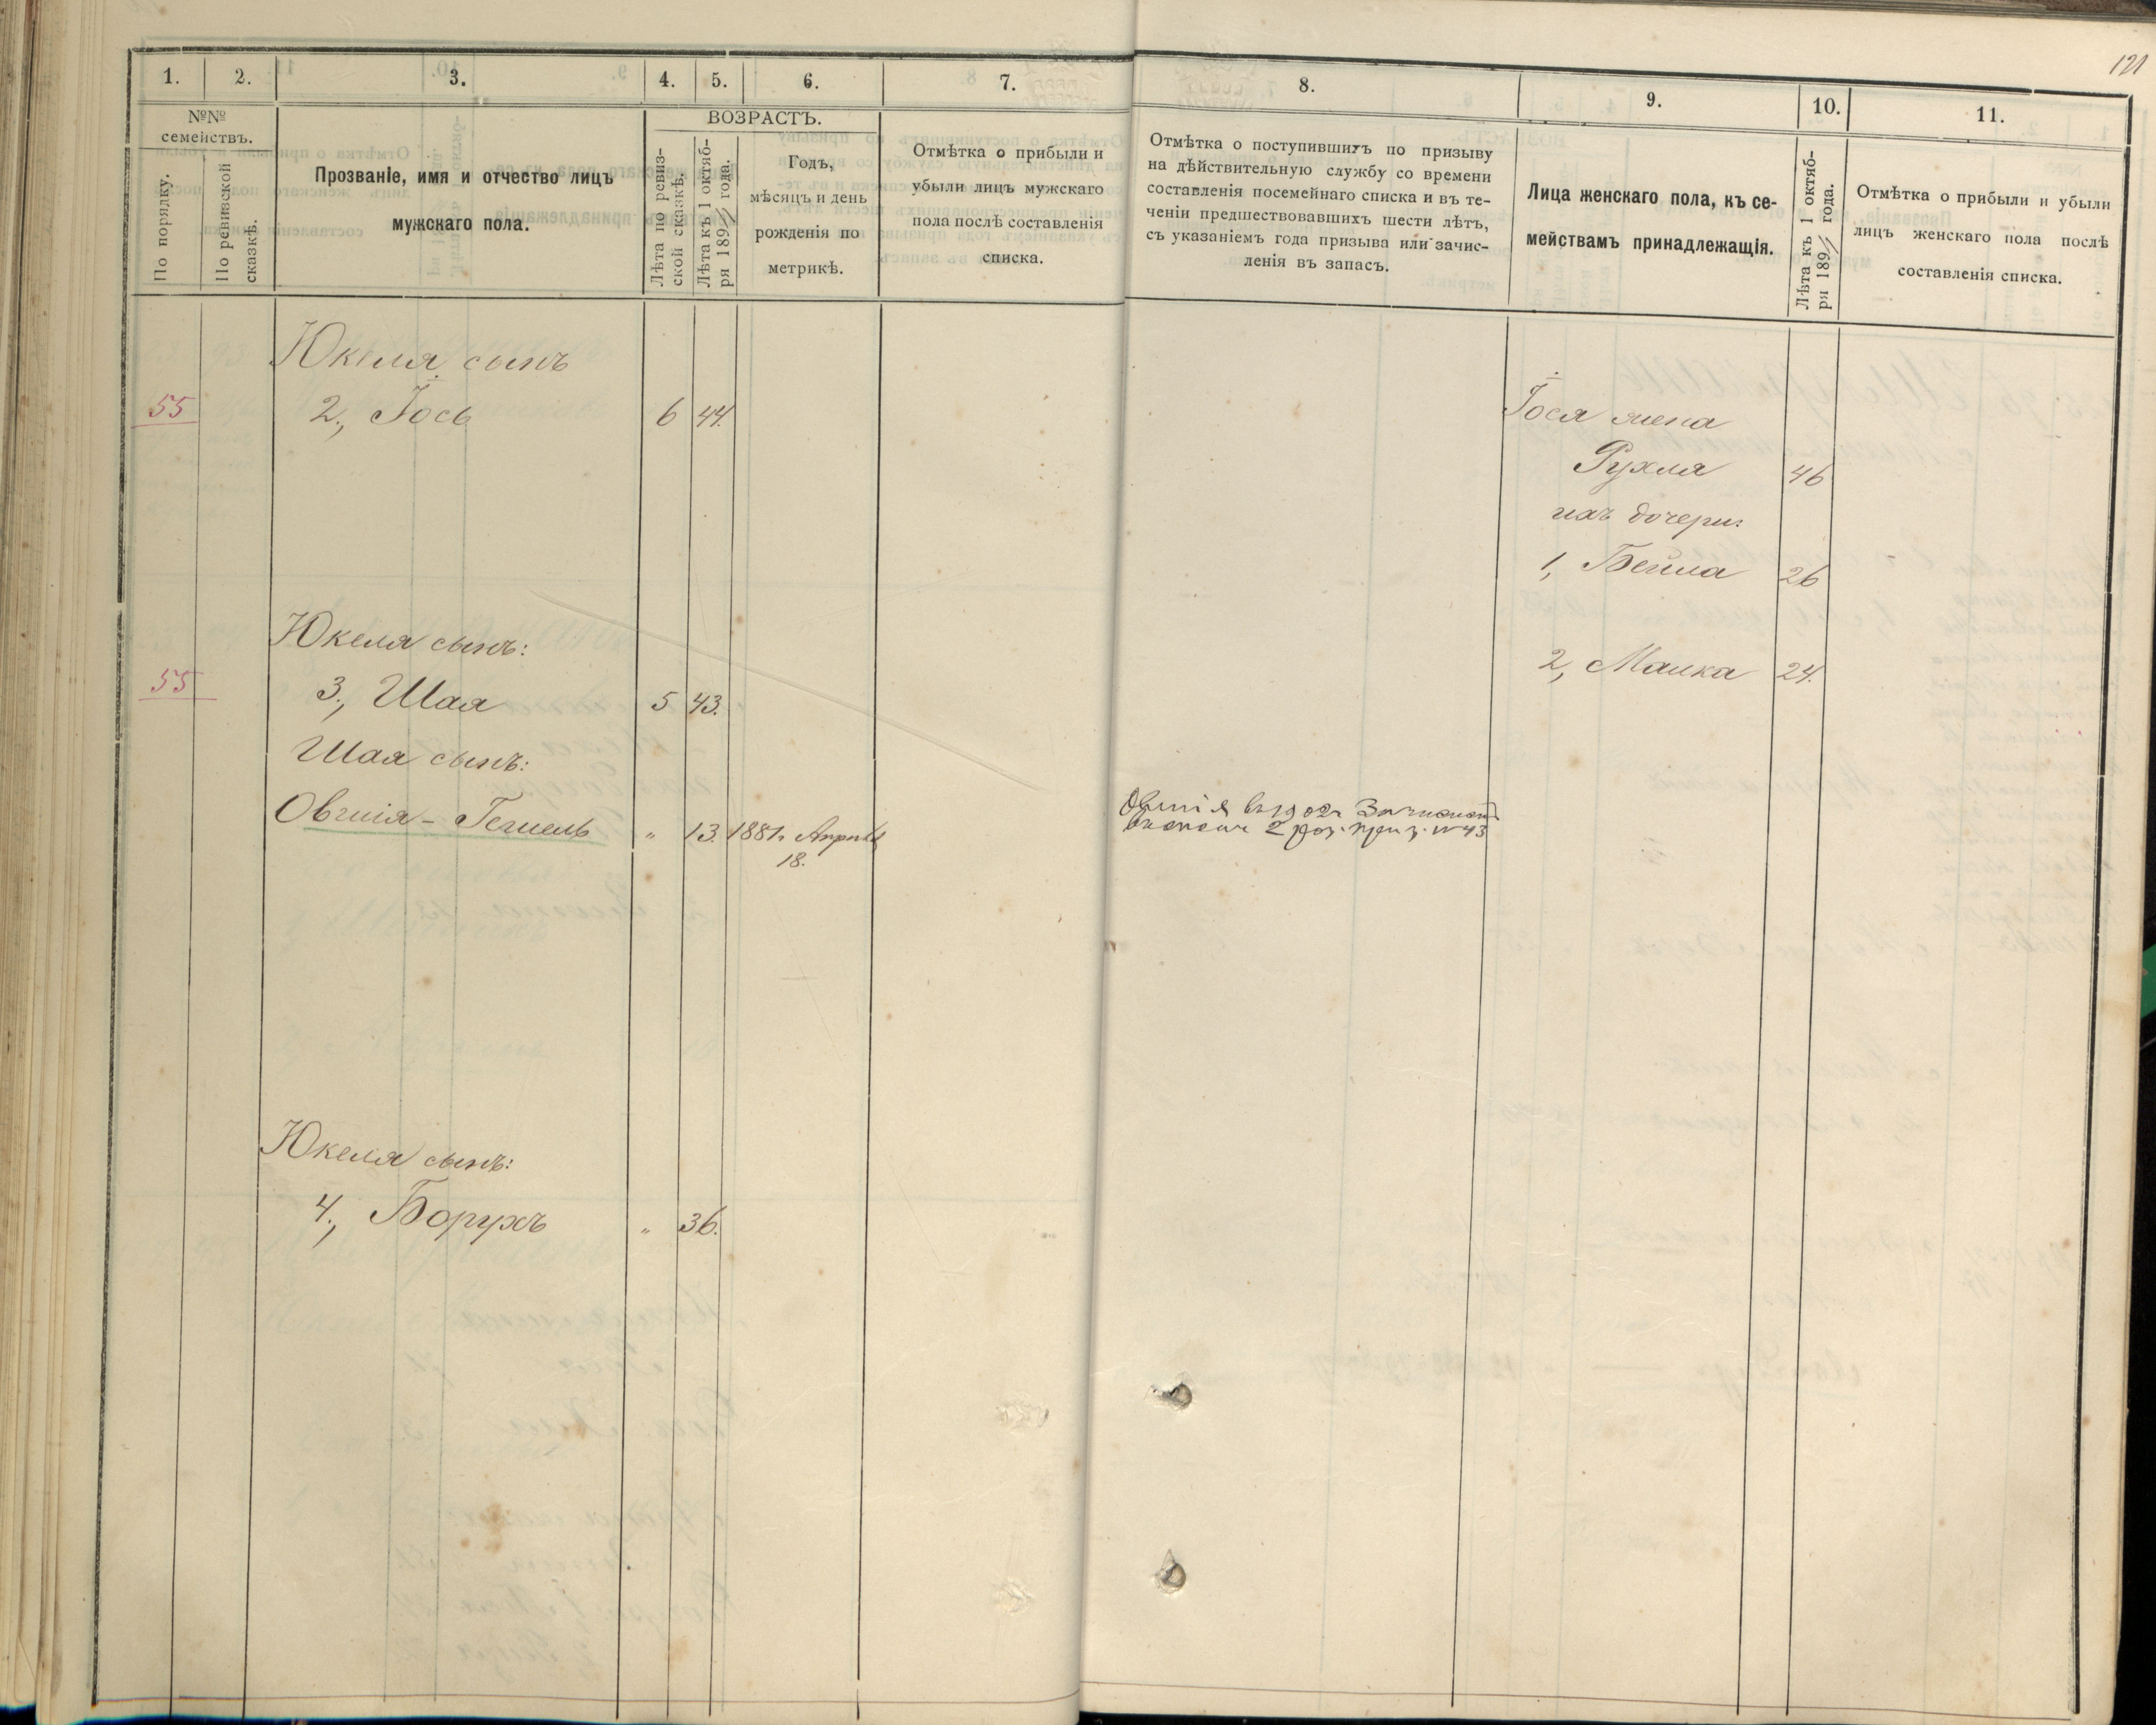 121
1. 2. 3. 4. 5. 6. 7. 8. 9. 10. 11.
№№
семействъ.
По порядку.
По ревизской
сказкѣ.
Прозваніе, имя и отчество лицъ
мужскаго пола.
ВОЗРАСТЪ.
Лѣта по ревиз-
ской сказкѣ.
Лѣта къ 1 октяб-
ря 189 года.
Годъ,
мѣсяцъ и день
рожденія по
метрикѣ.
Отмѣтка о прибыли и
убыли лицъ мужскаго
пола послѣ составленія
списка.
Отмѣтка о поступившихъ по призыву
на дѣйствительную службу со времени
составленія посемейнаго списка и въ те-
ченіи предшествовавшихъ шести лѣтъ,
съ указаніемъ года призыва или зачис-
ленія въ запасъ.
Лица женскаго пола, къ се-
мействамъ принадлежащія.
Лѣта къ 1 октяб-
ря 189 года.
Отмѣтка о прибыли и убыли
лицъ женскаго пола послѣ
составленія списка.
Юкеля сынъ
55 2., Іось 6 44.
Іося жена
Рухля 46
ихъ дочери:
1, Бейла 26
2, Малка 24.
Юкеля сынъ:
55 3., Шая 5 43.
Шая сынъ:
Овшія - " 13. 1881 г. Апрѣля
18.
Овшія въ 1902 г
2 раз. №43
Юкеля сынъ:
4., Борухъ " 36.